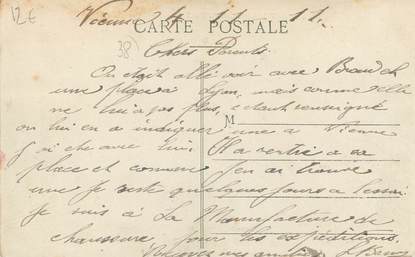 12€
Vienne 24 11 11.
CARTE POSTALE
38
Chers Parents.
On était allé voir avec
une place à Lyon, mais comme elle
ne lui a pas plus, et ayant renseigné
M
on lui en a indiquer une a Vienne
j'ai été avec lui. Il a rentré a sa
place et comme j'en ai trouvé
une je reste quelques jours a l'essai
je suis à La Manufacture de
chaussure, pour les expéditions.
mes amitiés